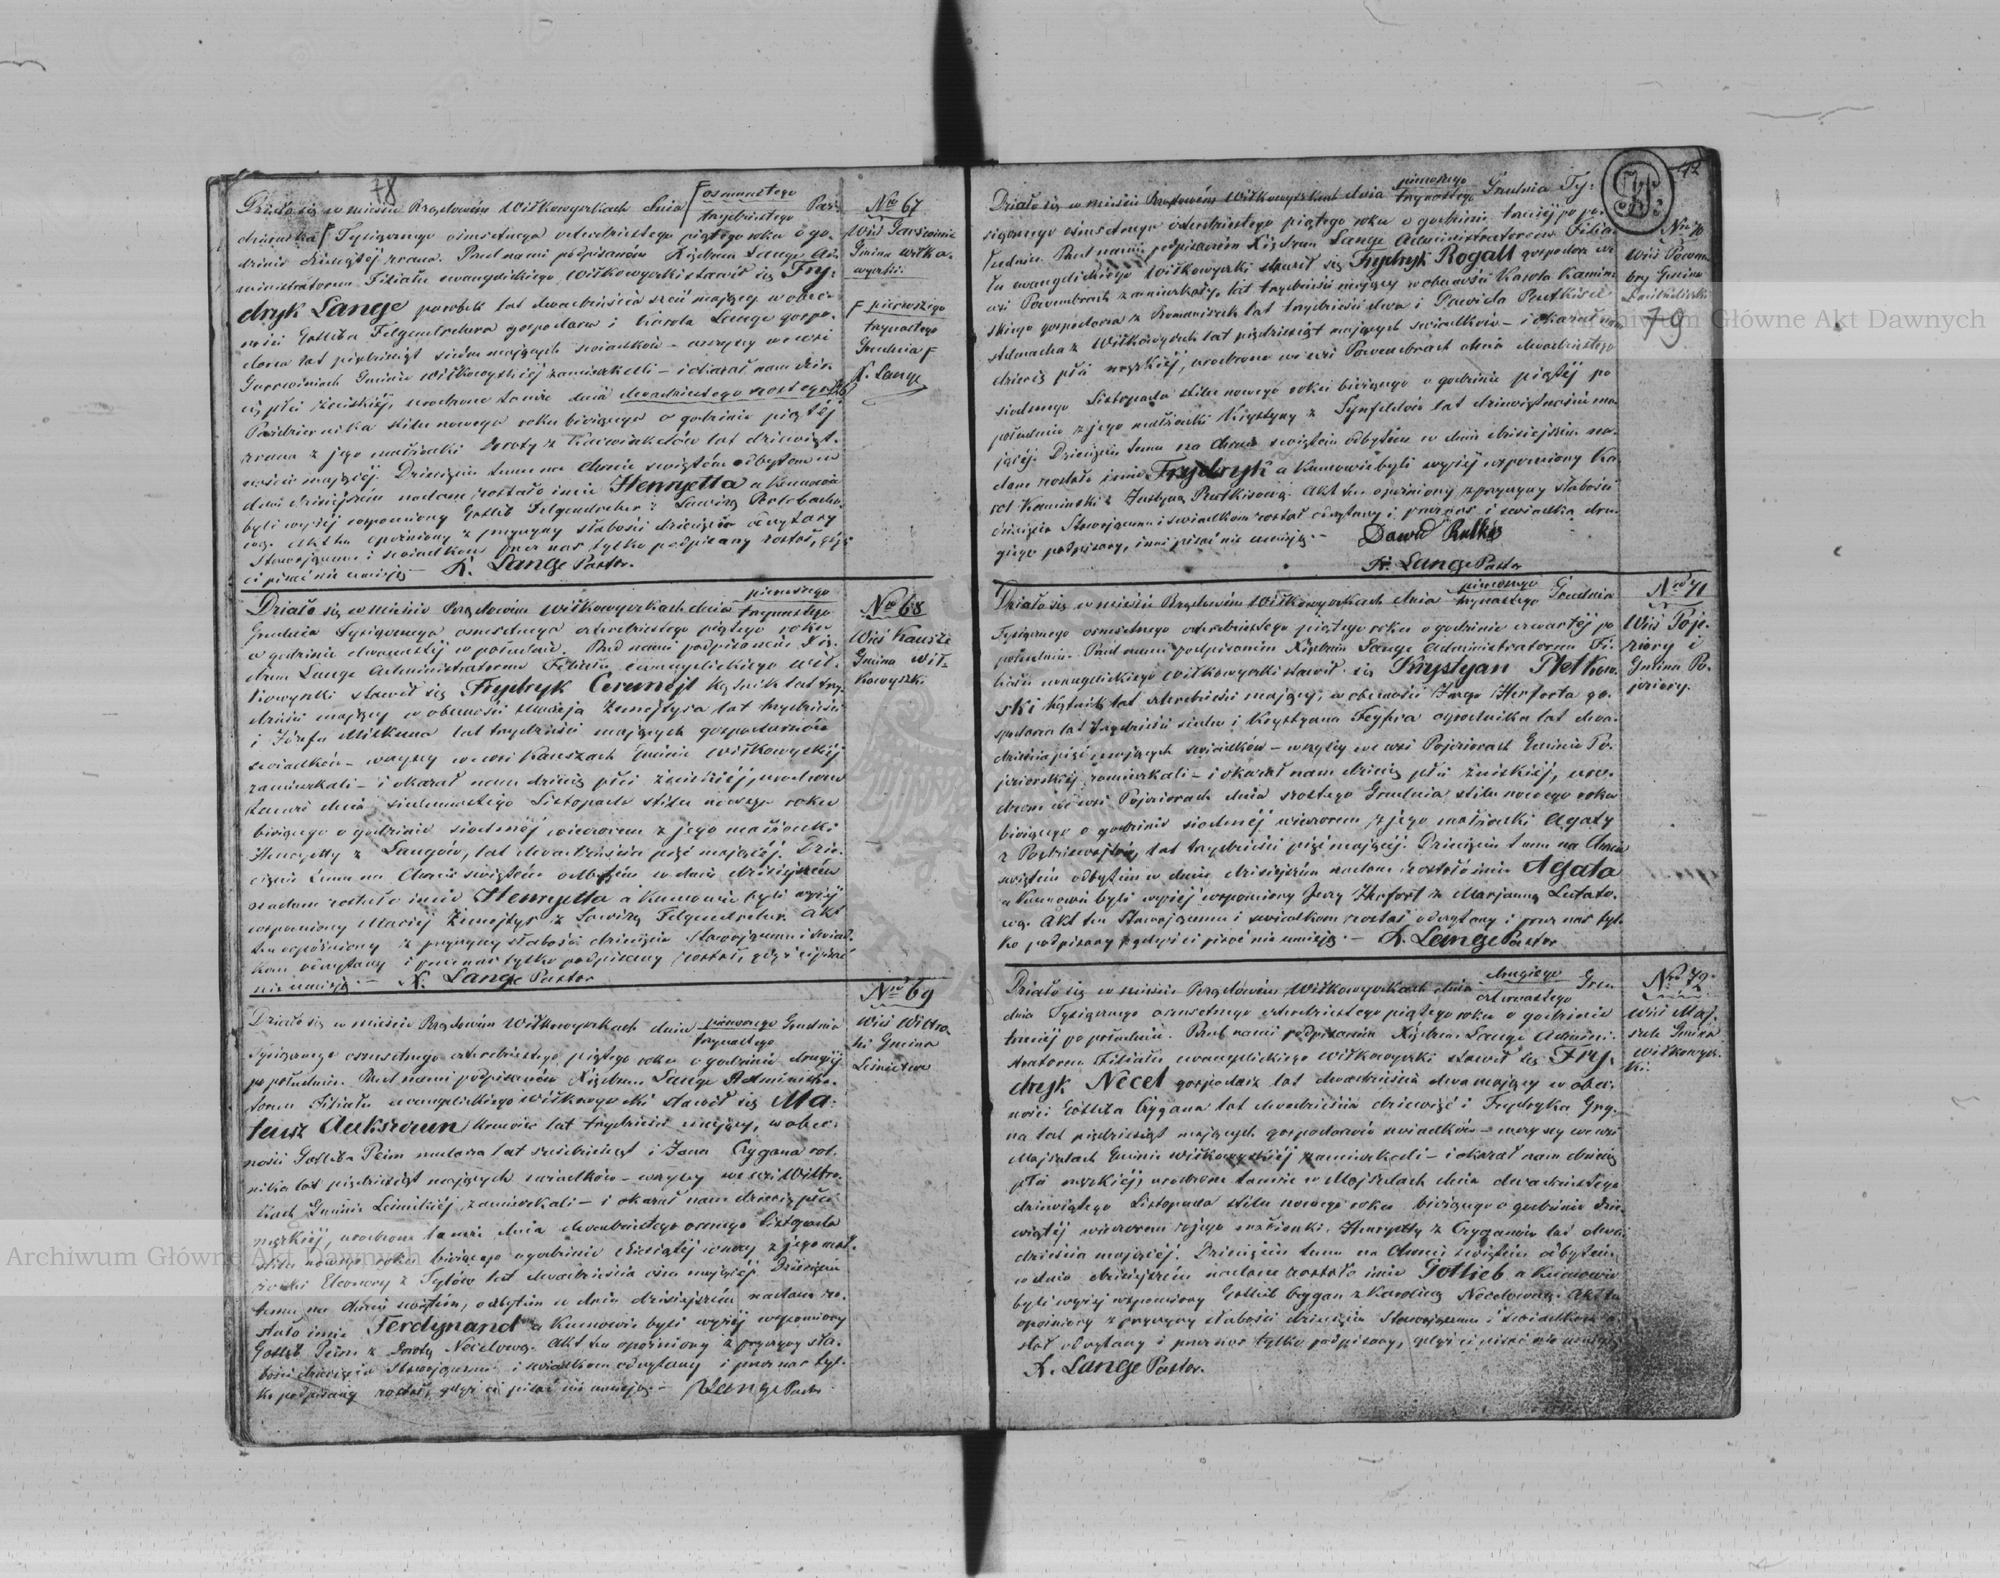 78
Działo się w mieście Rządowém Wiłkowyszkach dnia osmnastego
trzydziestego Paź-
dziernika Tysiącznego osmsetnego czterdziestego piątego roku o go-
dzinie dziesiątej zrana. Przed nami podpisaném Xiędzem Lange Ad-
ministratorem Filiału ewangelickiego Wiłkowyszki stawił się Fry-
dryk Lange parobek lat dwadzieścia sześć mający w obec-
ności Gottliba Felgendrehera gospodarza i Karola Lange gospo-
darza lat pięćdziesiąt siedm mających świadków – wszyscy we wsi
Gminie Wiłkowyskiéj zamieszkali – i okazał nam dzie-
cię płci żeńskiéj, urodzone tamże dnia dwudziestego szóstego
Października stilu nowego roku bieżącego o godzinie piątéj
zrana z jego małżonki Doroty z lat dziewięt-
naście mającéj. Dziecięciu temu na Chrzcie świętém odbytem w
dniu dzisiejszém nadane zostało imie Henryetta a Kumowie
byli wyżéj wspomniony Gottlib Felgendreher z Lowizą
Akt ten opóźniony z przyczyny słabości dziecięcia odczytany
Stawającemu i świadkom przez nas tylko podpisany został, gdyż
ci pisać nie umieją – K. Lange Pastor.
No 67
Wieś
Gmina Wiłko-
wyszki.
F pierwszego
trzynastego
Grudnia F
K. Lange
Działo się w mieście Rządowém Wiłkowyszkach dnia pierwszego
trzynastego
Grudnia Tysiącznego osmsetnego czterdziestego piątego roku
o godzinie dwunastéj w południe. Przed nami podpisanem Xię-
dzem Lange Administratorem Filiału ewangelickiego Wił-
kowyszki stawił się Frydryk Cerunejt Kątnik lat trzy-
dzieści mający w obecności Macieja Żemojtysa lat trzydzieści
i Józefa Mitkusa lat trzydzieści mających gospodarzów
świadków – wszyscy we wsi Kauszach Gminie Wiłkowyskiéj
zamieszkali – i okazał nam dziecię płci żeńskiéj, urodzone
tamże dnia siedmnastego Listopada stilu nowego roku
bieżącego o godzinie siódméj wieczorem z jego małżonki
Henryetty z Langów, lat dwadzieścia pięć mającéj. Dzie-
cięciu temu na Chrzcie świętém odbytém w dniu dzisiejszém
nadane zostało imie Henryetta a Kumowie byli wyżéj
wspomniony Maciéj Żemojtys z Lowizą Felgendreher. Akt
ten opóźniony z przyczyny słabości dziecięcia Stawającemu i świad-
kom odczytany i przez nas tylko podpisany został, gdyż ci pisać
nie umieją. – K. Lange Pastor
No 68
Wieś Kausze
Gmina Wił-
kowyszki
Działo się w mieście Rządowém Wiłkowyszkach dnia pierwszego
trzynastego Grudnia
Tysiącznego osmsetnego czterdziestego piątego roku o godzinie drugiéj
po południu. Przed nami podpisaném Xiędzem Lange Administra-
torem Filiału ewangelickiego Wiłkowyszki stawił się Ma-
teusz Aukszcun lat trzydzieści mający, w obec-
ności Gottliba Peim lat sześćdziesiąt i Jana Cygana rol-
nika lat pięćdziesiąt mających świadków – wszyscy we wsi
Gminie zamieszkali – i okazał nam dziecię płci
męzkiéj, urodzone tamże dnia dwudziestego osmego Listopada
stilu nowego roku bieżącego o godzinie dziesiątéj w nocy z jego mał-
żonki Eleonory z lat dwadzieścia osm mającéj. Dziecięciu
temu na Chrzcie świętém, odbytém w dniu dzisiejszém nadane zo-
stało imie Ferdynand a Kumowie byli wyżéj wspomniony
Gottlib Peim z Dorotą Necelową. Akt ten opóźniony z przyczyny sła-
bości dziecięcia Stawającemu i świadkom odczytany i przez nas tyl-
ko podpisany został, gdyż ci pisać nie umieją. – K. Lange Pastor
No 69
Wieś
Gmina
Leśnictwo
42
79
Działo się w mieście Rządowém Wiłkowyszkach dnia pierwszego
trzynastego Grudnia Ty-
siącznego osmsetnego czterdziestego piątego roku o godzinie trzeciéj po po-
łudniu. Przed nami podpisaném Xiędzem Lange Administratorem Filia-
łu ewangelickiego Wiłkowyszki stawił się Frydryk Rogall gospodarz we
wsi Powembrach zamieszkały, lat trzydzieści mający w obecności Karola Kamin-
skiego gospodarza z lat trzydzieści dwa i Dawida Rutkis
z Wiłkowyszek lat pięćdziesiąt mających świadków – i okazał nam
dziecię płci męzkiéj, urodzone we wsi Powembrach dnia dwudziestego
siódmego Listopada stilu nowego roku bieżącego o godzinie piątéj po
południu z jego małżonki Krystyny z lat dziewiętnaście ma-
jącéj. Dziecięciu temu na Chrzcie świętém odbytém w dniu dzisiejszém na-
dane zostało imie Frydryk a Kumowie byli wyżéj wspomniony Ka-
rol Kaminski z Justyną Rutkisową. Akt ten opóźniony z przyczyny słabości
dziecięcia Stawającemu i świadkom został odczytany i przez nas i świadka dru-
giego podpisany, inni pisać nie umieją. –
Dawid Rutkis
K. Lange Pastor
No 70
Wieś Powem-
bry Gmina
Działo się w mieście Rządowém Wiłkowyszkach dnia pierwszego
trzynastego Grudnia
Tysiącznego osmsetnego czterdziestego piątego roku o godzinie czwartéj po
południu. Przed nami podpisaném Xiędzem Lange Administratorem Fi-
liału ewangelickiego Wiłkowyszki stawił się Krystyan Pletkow-
ski Kątnik lat czterdzieści mający, w obecności Jerzego Herforta go-
spodarza lat trzydzieści siedm i Krystyana ogrodnika lat dwa-
dzieścia pięć mających świadków – wszyscy we wsi Pojeziorach Gminie Po-
jeziorskiéj zamieszkali – i okazał nam dziecię płci żeńskiéj, uro-
dzone we wsi Pojeziorach dnia szóstego Grudnia stilu nowego roku
bieżącego o godzinie siódméj wieczorem z jego małżonki Agaty
z lat trzydzieści pięć mającéj. Dziecięciu temu na Chrzcie
świętém odbytém w dniu dzisiejszém nadane zostało imie Agata
a Kumowie byli wyżéj wspomniony Jerzy Herfort z Marjanną
Akt ten Stawającemu i świadkom został odczytany i przez nas tyl-
ko podpisany gdyż ci pisać nie umieją. – K. Lange Pastor
No 71
Wieś Poje-
ziory i
Gmina Po-
jeziory.
Działo się w mieście Rządowém Wiłkowyszkach dnia drugiego
czternastego Gru-
dnia Tysiącznego osmsetnego czterdziestego piątego roku o godzinie
trzeciéj po południu. Przed nami podpisaném Xiędzem Lange Admini-
stratorem Filiału ewangelickiego Wiłkowyszki stawił się Fry-
dryk Necel gospodarz lat dwadzieścia dwa mający w obec-
ności Gottliba Cygana lat dwadzieścia dziewięć i Frydryka
lat pięćdziesiąt mających gospodarzów świadków – wszyscy we wsi
Majsztach Gminie Wiłkowyskiéj zamieszkali – i okazał nam dziecię
płci męzkiéj, urodzone tamże w Majsztach dnia dwudziestego
dziewiątego Listopada stilu nowego roku bieżącego o godzinie dzie-
wiątéj wieczorem z jego małżonki Henryetty z Cyganów lat dwa-
dzieścia mającéj. Dziecięciu temu na Chrzcie świętém odbytém
w dniu dzisiejszém nadane zostało imie Gottlieb a Kumowie
byli wyżéj wspomniony Gottlib Cygan z Karoliną Necelowną. Akt ten
opóźniony z przyczyny słabości dziecięcia Stawającemu i świadkom zo-
stał odczytany i przez nas tylko podpisany, gdyż ci pisać nie umieją
K. Lange Pastor.
No 72
Wieś Maj-
szty Gmina
Wiłkowysz-
ki.
Archiwum Główne Akt Dawnych
Archiwum Główne Akt Dawnych